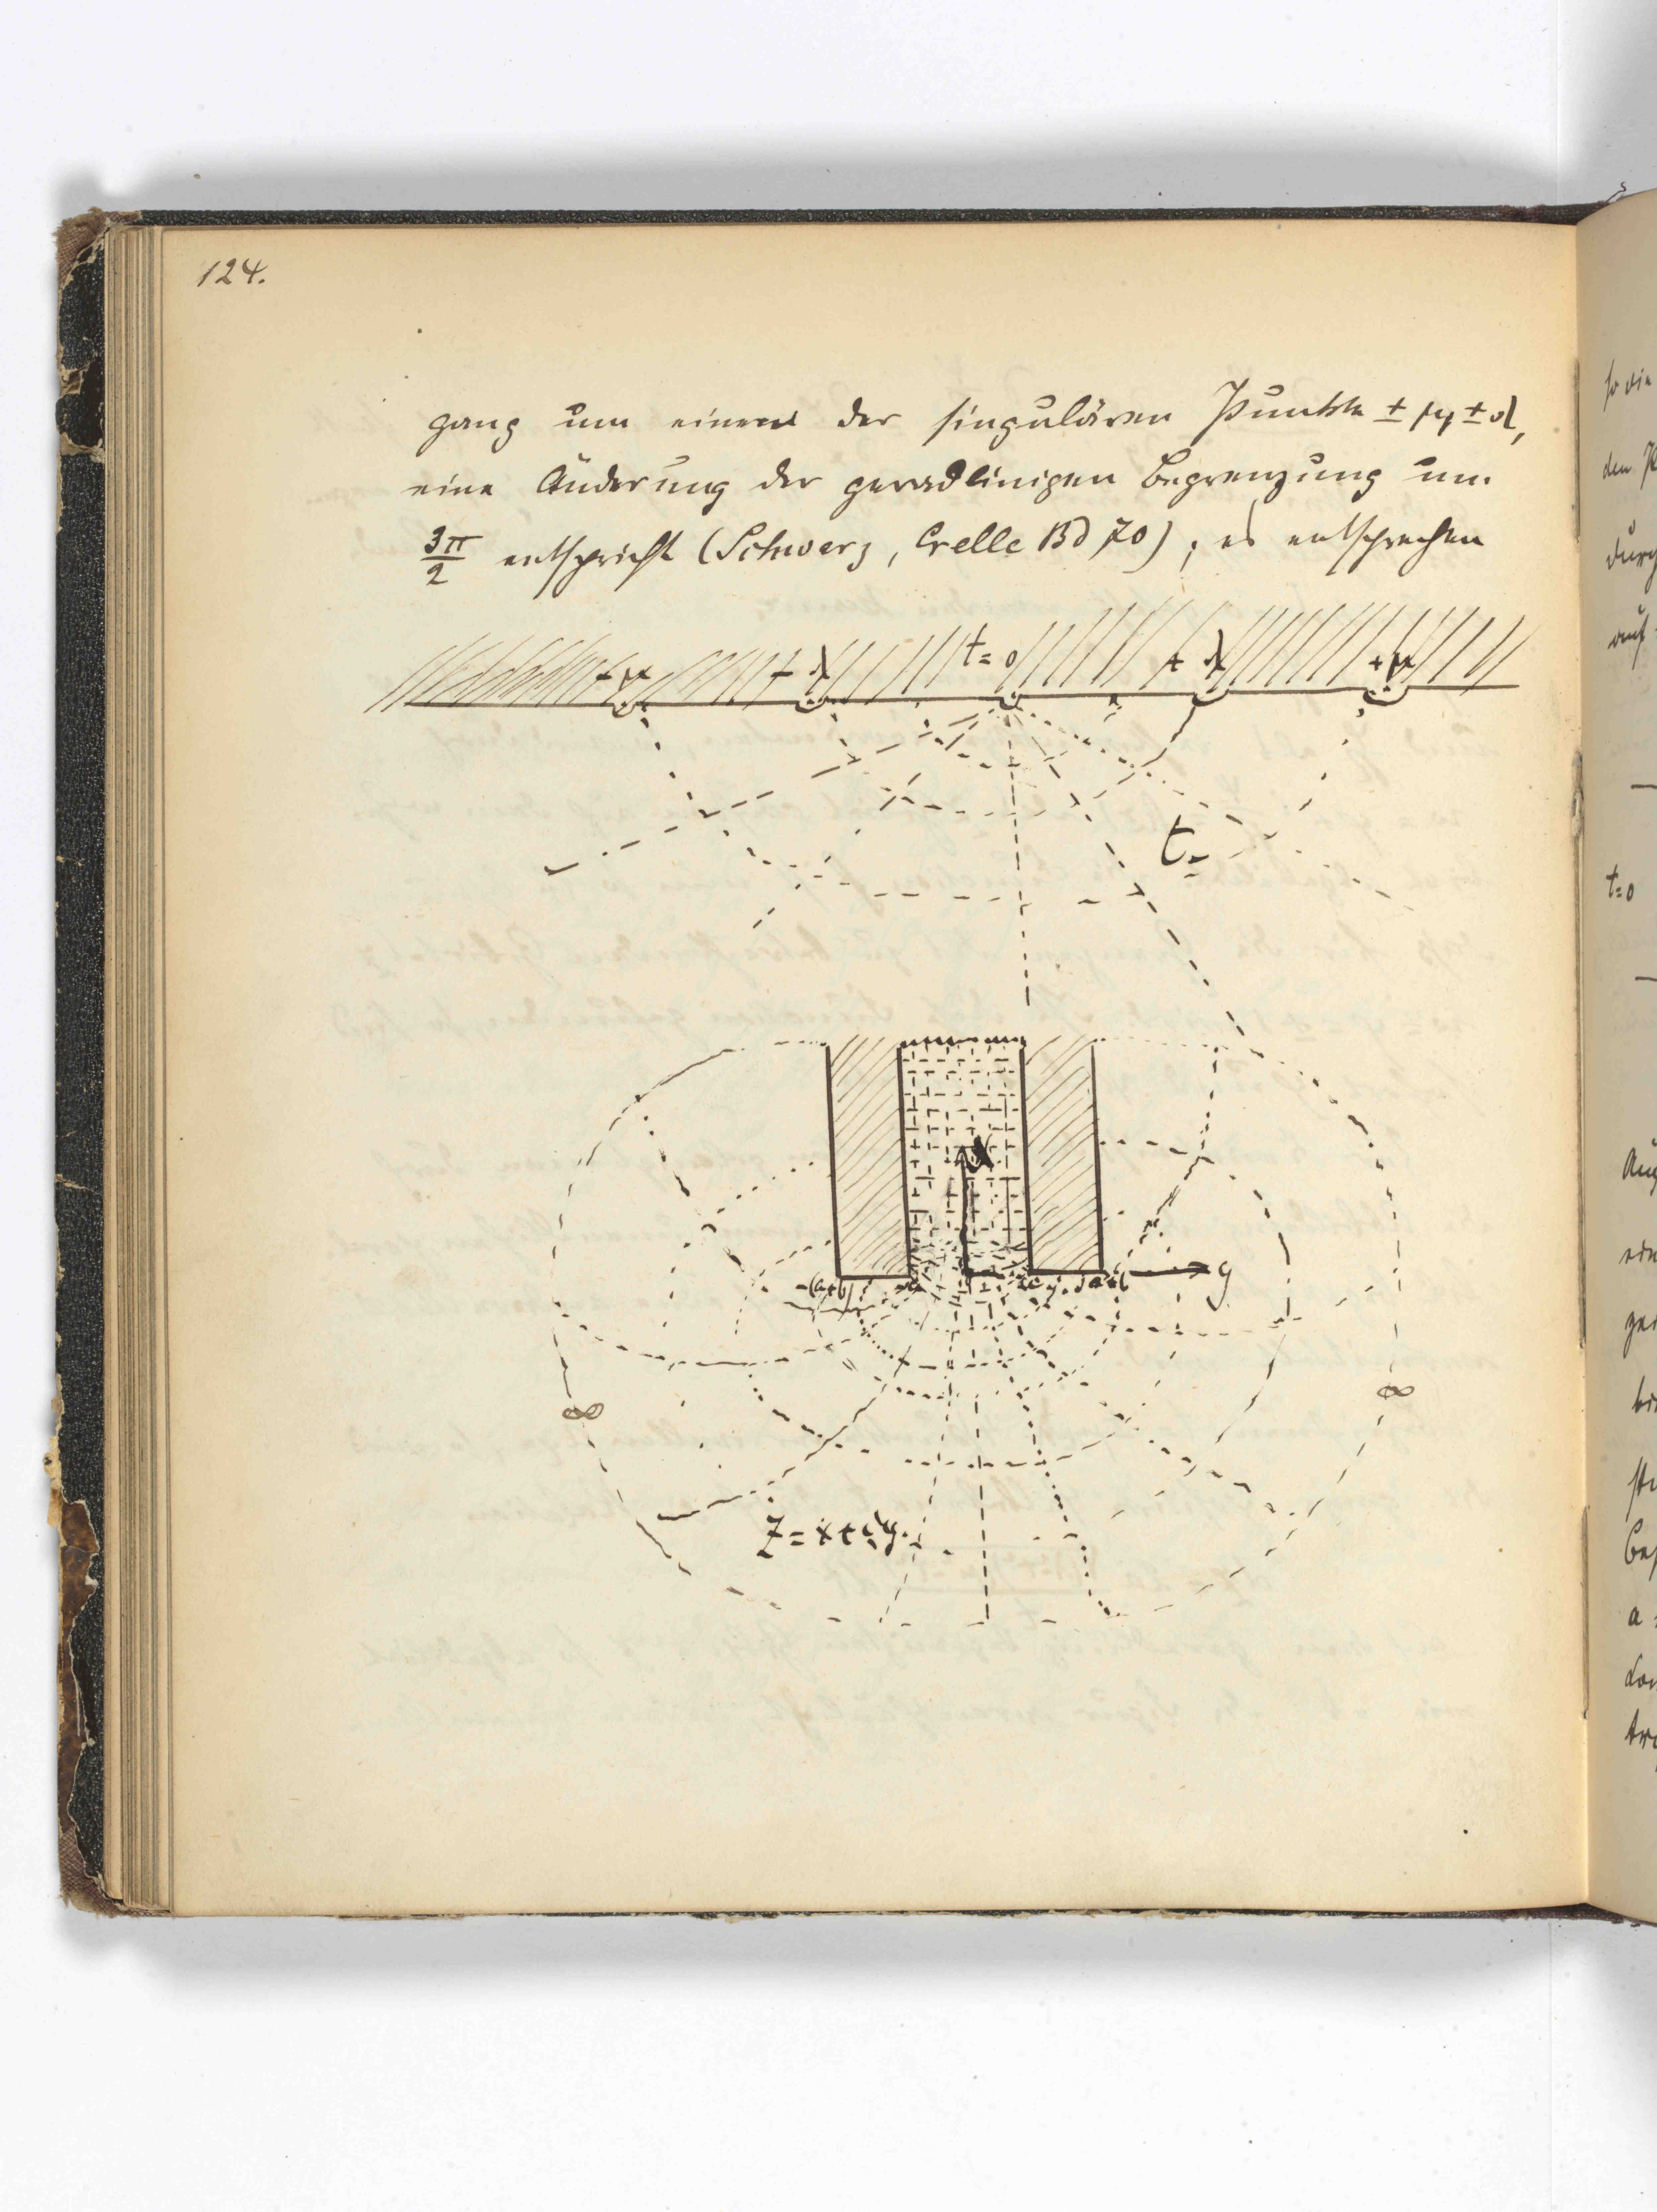 124.
gang um einen der singulären Punkte ± μ, ± λ,
eine Änderung der geradlinigen Begrenzung um
3π/2 entspricht (Schwarz, Crelle Bd 70); es entsprechen
- μ - λ t=0 + λ + μ
t=
x
-(a+b) -a +a a+b y
∞ ∞
z = x + iy.
so die
den
durch
auf
t=0